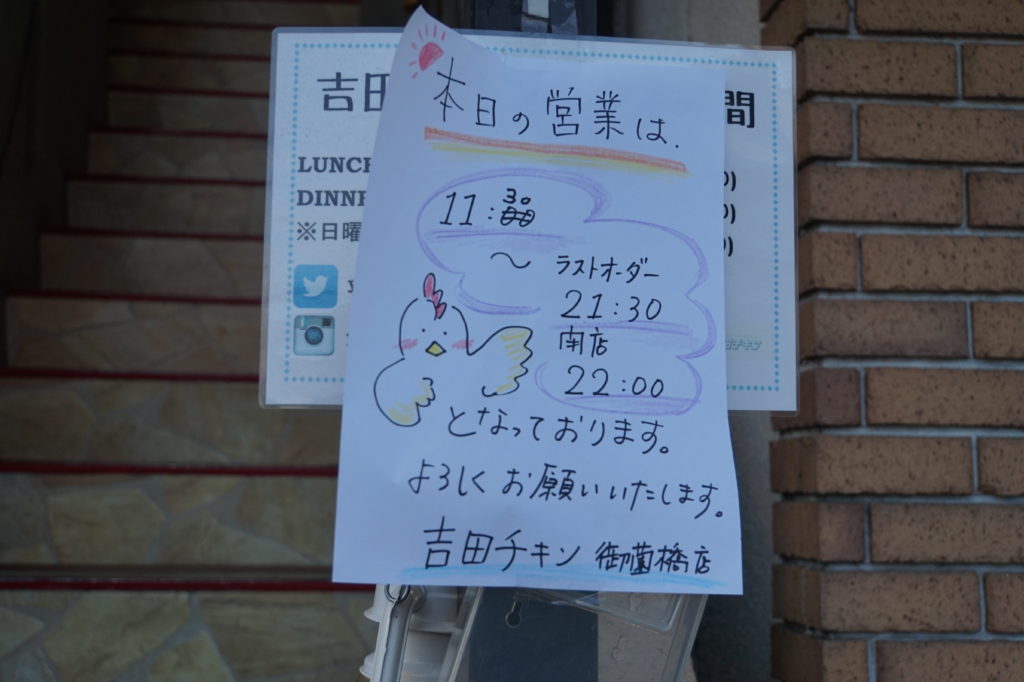 吉田
間
LUNCH
DINNE
※日曜
本日の営業は.
11:30
〜
ラストオーダー
21:30
閉店
22:00
となっております。
よろしくお願いいたします。
吉田チキン 御薗橋店